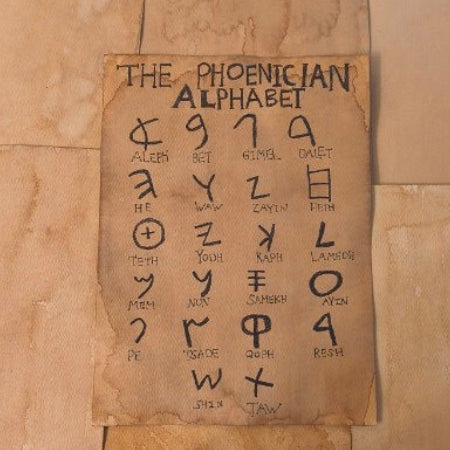 THE PHOENICIAN
ALPHABET
𐤀 𐤁 𐤂 𐤃
ALEPH BET GIMEL DALET
𐤄 𐤅 𐤆 𐤇
HE WAW ZAYIN HETH
𐤈 𐤉 𐤊 𐤋
TETH YODH KAPH LAMEDH
𐤌 𐤍 𐤎 𐤏
MEM NUN SAMEKH AYIN
𐤐 𐤑 𐤒 𐤓
PE TSADE QOPH RESH
𐤔 𐤕
SHIN TAW